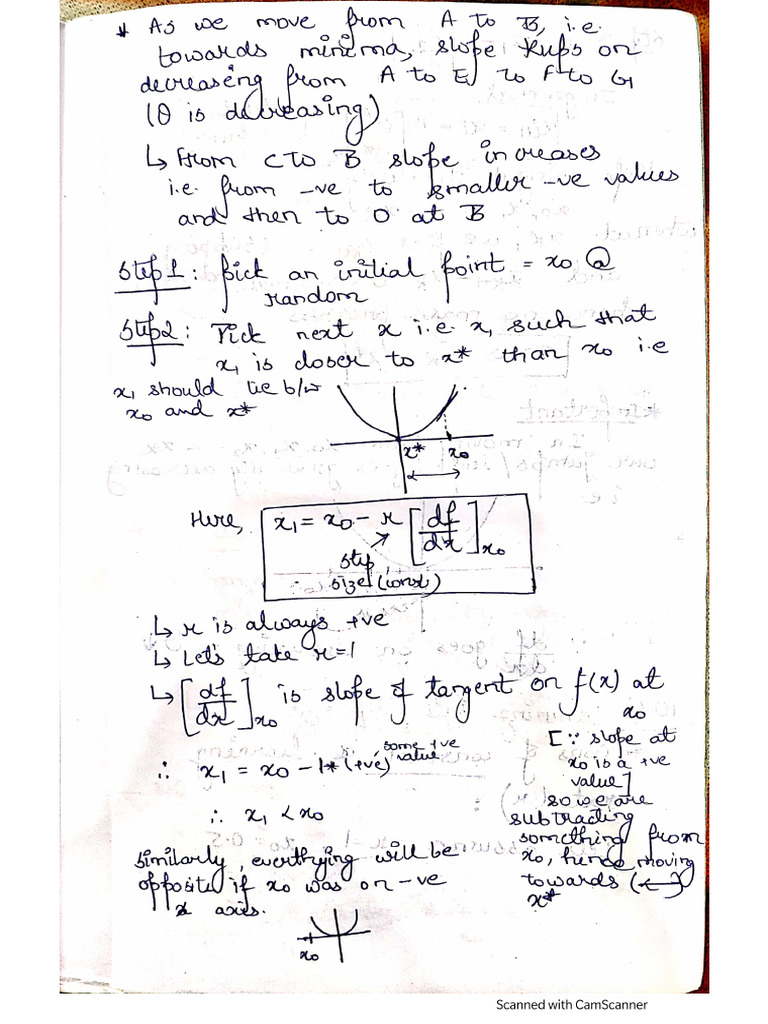 * As we move from A to B, i.e.
towards minima, slope keeps on
decreasing from A to E to F to G
(θ is decreasing)
↳ From C to B slope increases
i.e. from -ve to smaller -ve values
and then to 0 at B
Step 1: pick an initial point = x₀ @
random
Step 2: Pick next x i.e. x₁ such that
x₁ is closer to x* than x₀ i.e
x₁ should lie b/w
x₀ and x*
x* x₀
Here, x₁ = x₀ - r [df/dx]x₀
step
size (const)
↳ r is always +ve
↳ Let's take r=1
↳ [df/dx]x₀ is slope of tangent on f(x) at
x₀
∴ x₁ = x₀ - 1* (+ve) some +ve
value
[∵ slope at
x₀ is a +ve
value]
∴ x₁ < x₀
so we are
subtracting
something from
x₀, hence moving
towards (←)
x*
Similarly, everthying will be
opposite if x₀ was on -ve
x axis.
x₀
Scanned with CamScanner